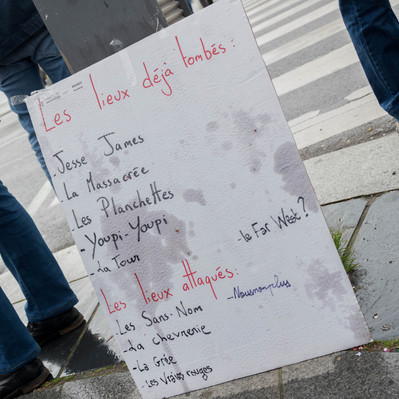 Les lieux déjà tombés :
- Jesse James
- La Massacrée
- Les Planchettes
- Youpi-Youpi
- La Tour
- Le Far West ?
Les lieux attaqués :
- Les Sans-Nom
- La chevrerie
- La Grée
- Les Vraies rouges
- Nousnonplus